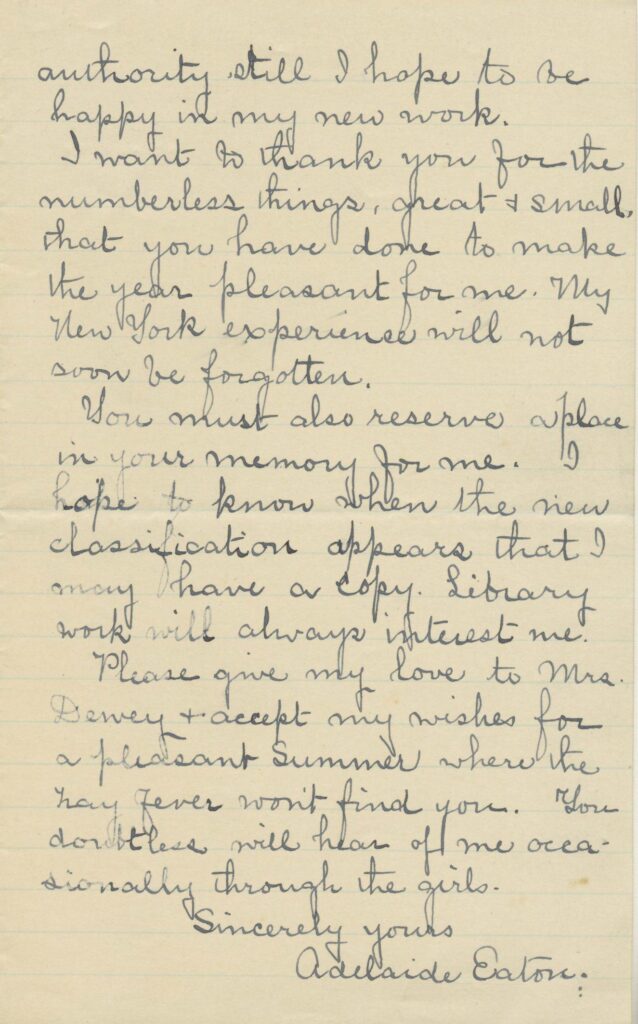 authority still I hope to be
happy in my new work.
I want to thank you for the
numberless things, great + small,
that you have done to make
the year pleasant for me. My
New York experience will not
soon be forgotten.
You must also reserve a place
in your memory for me. I
hope to know when the new
classification appears that I
may have a copy. Library
work will always interest me.
Please give my love to Mrs.
Dewey + accept my wishes for
a pleasant Summer where the
hay fever won't find you. You
doubtless will hear of me occa-
sionally through the girls.
Sincerely yours
Adelaide Eaton.